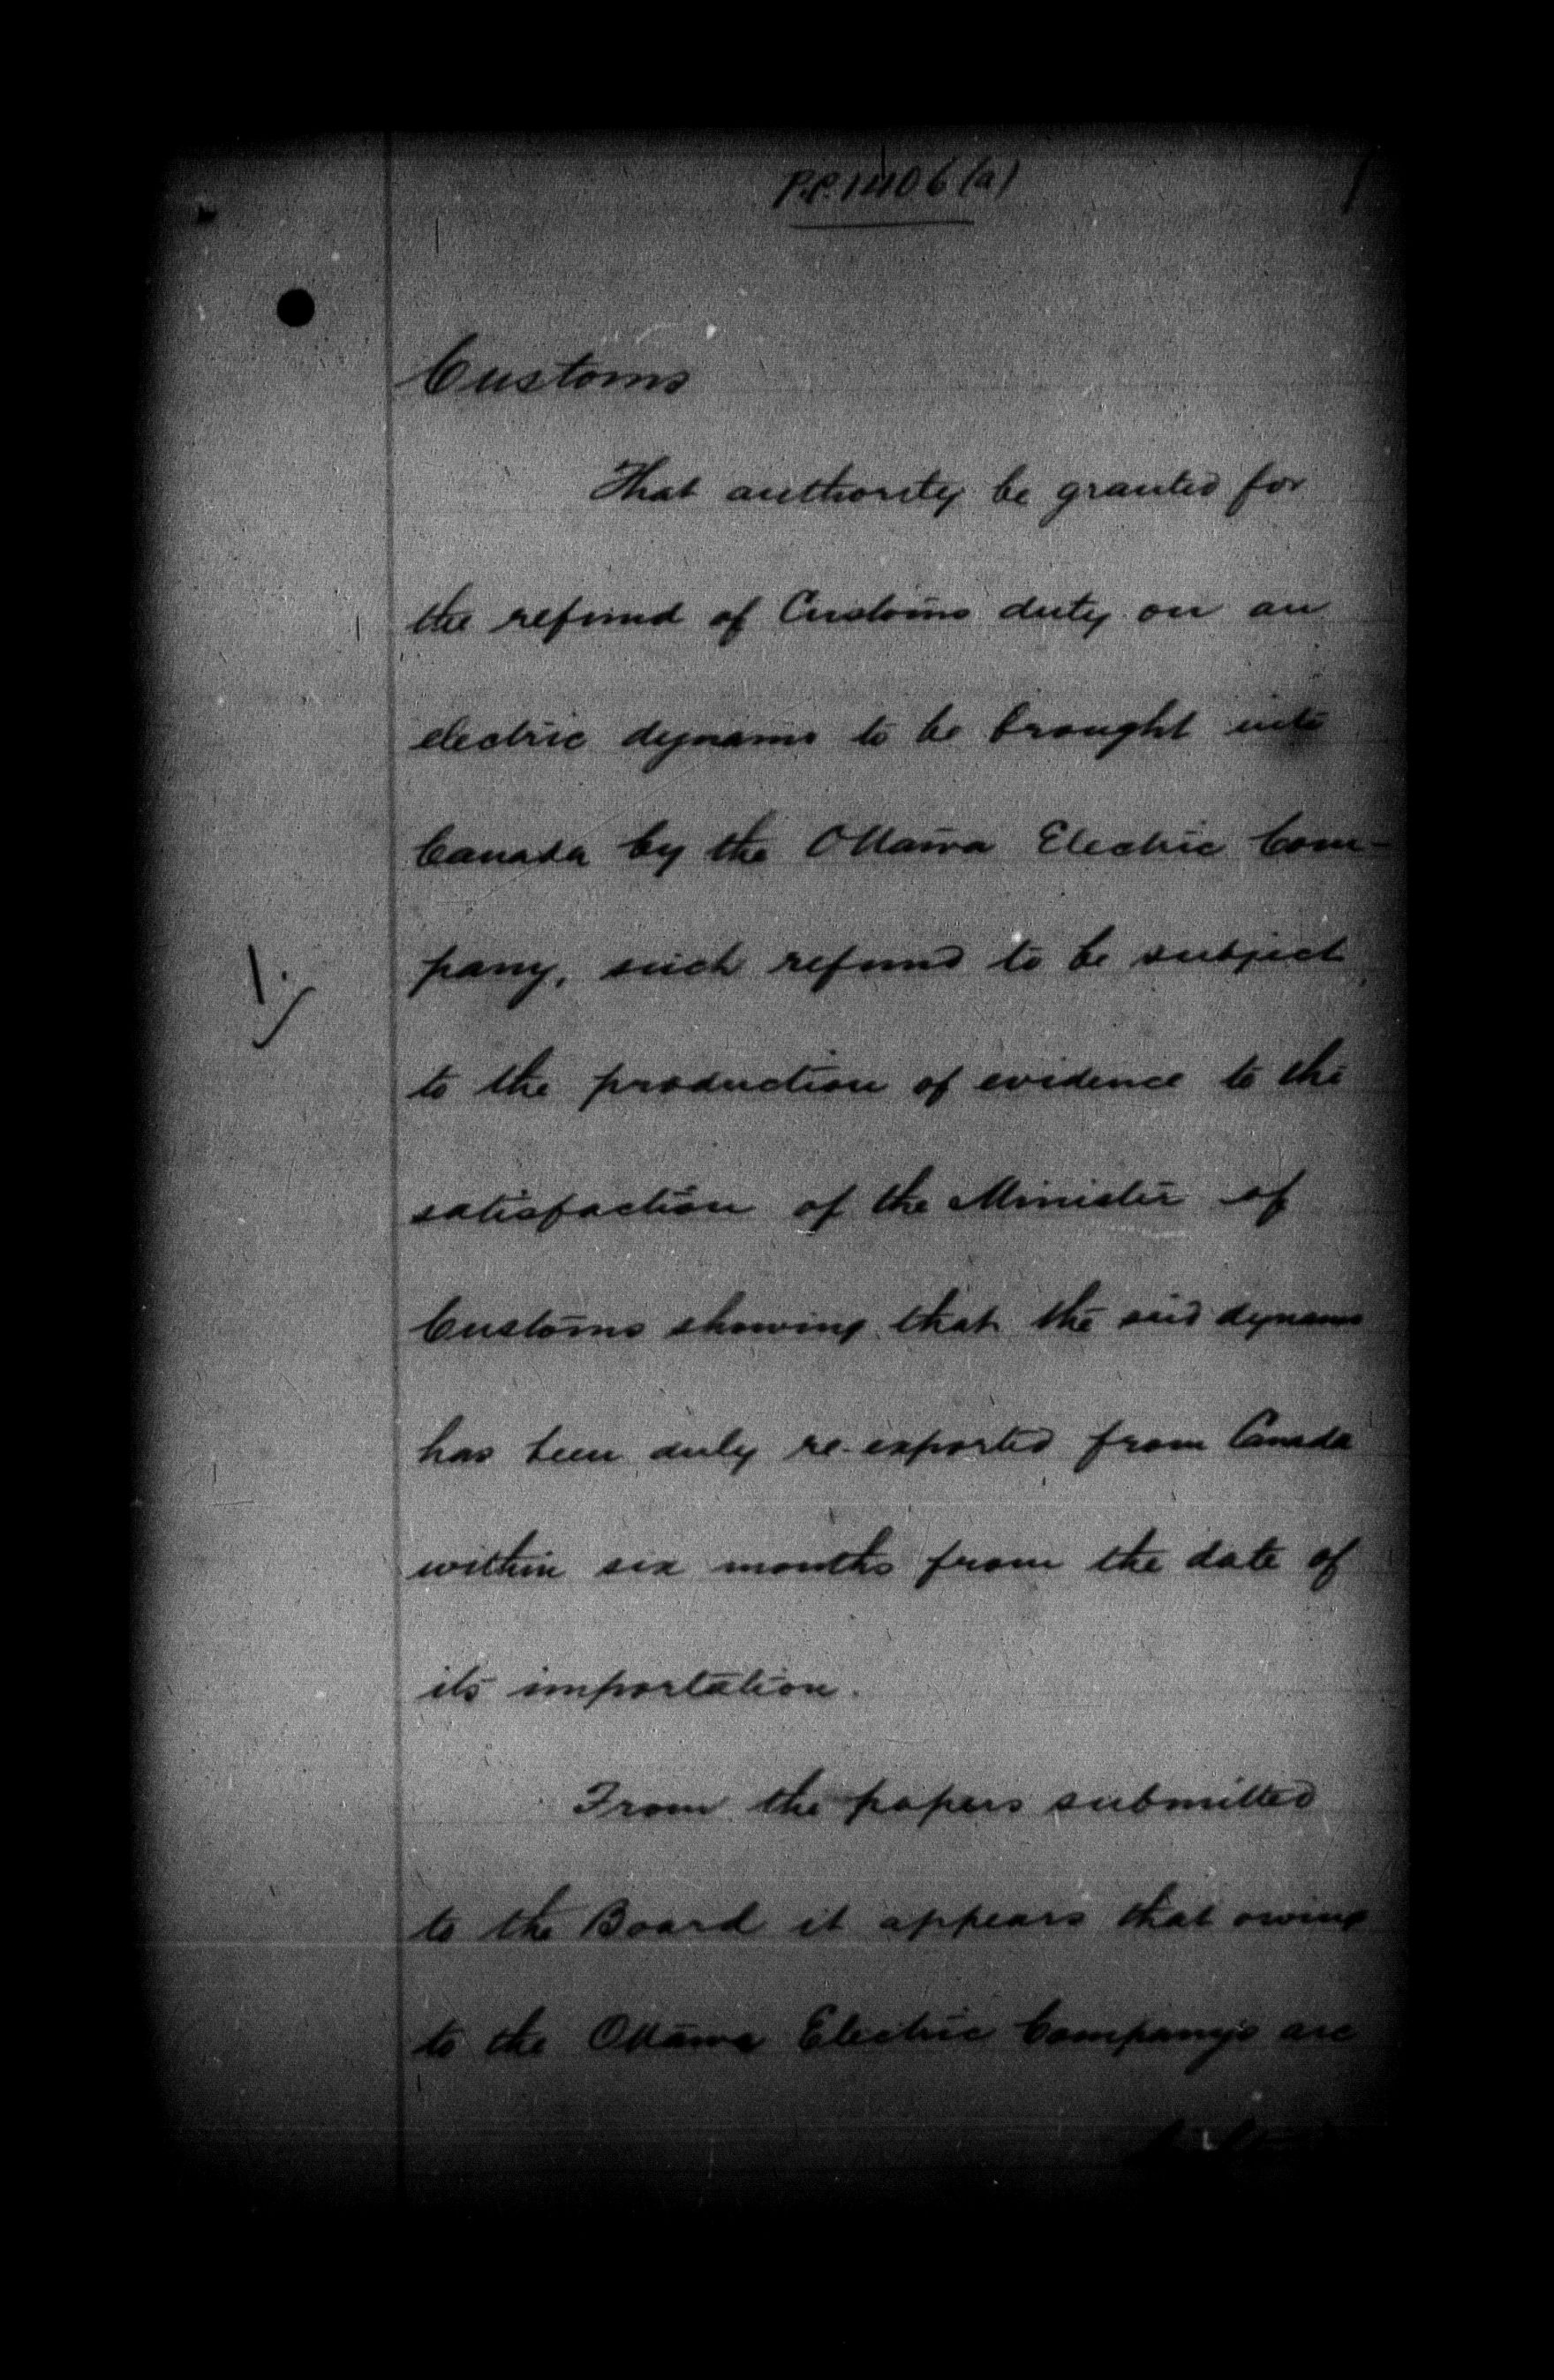 P.C. 1406 (a)
Customs
That authority be granted for
the refund of Customs duty on an
electric dynamo to be brought into
Canada by the Ottawa Electric Com-
pany, such refund to be subject
to the production of evidence to the
satisfaction of the Minister of
Customs showing that the said dynamo
has been duly re-exported from Canada
within six months from the date of
its importation.
From the papers submitted
to the Board it appears that owing
to the Ottawa Electric Company's arc